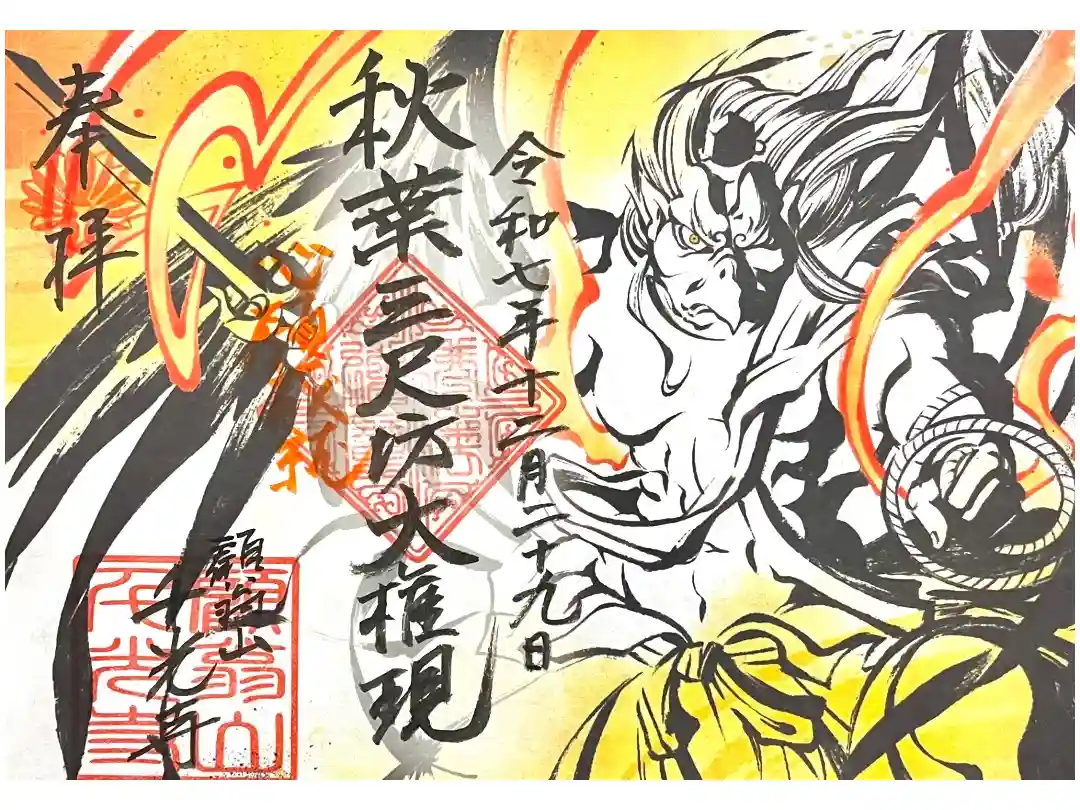 令和七年十二月二十九日
秋葉三尺坊大権現
心願成就
奉拝
山
千光寺